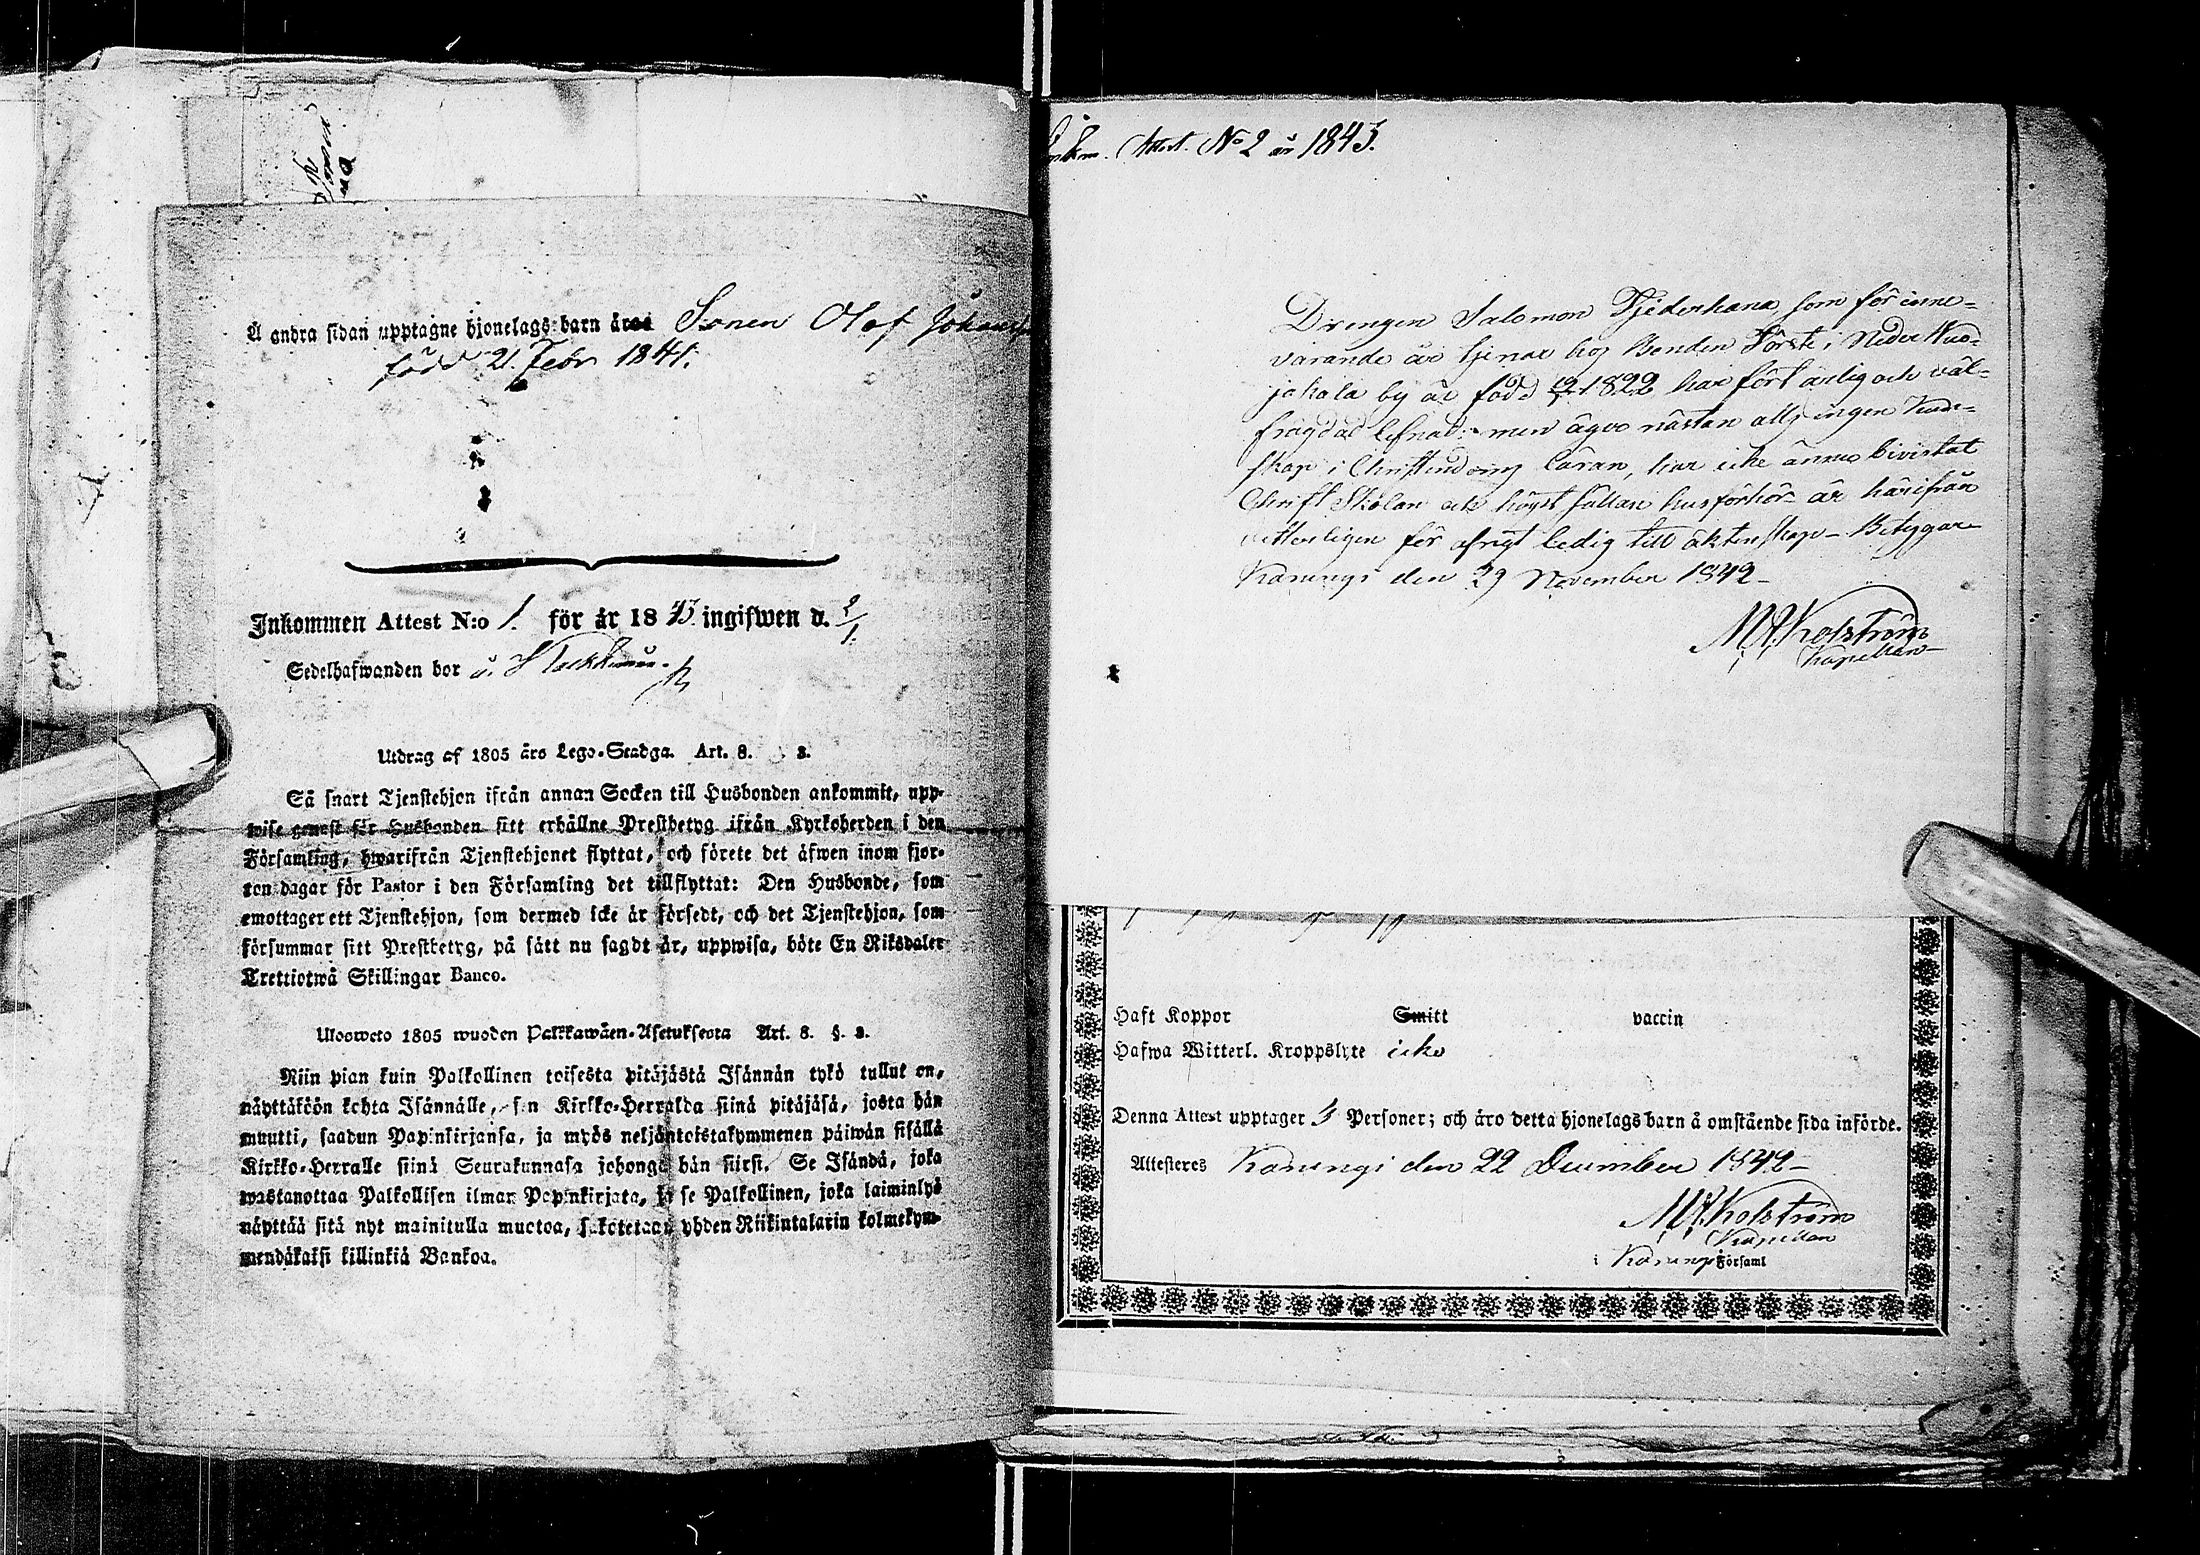 Å andra sidan upptagne hjonelags barn äro Sonen Olof Johan
född 21. Febr 1841.
Inkommen Attest N:o 1. för år 1843 ingifwen d. 2/1.
Sedelhafwanden bor
Utdrag af 1805 års Lego-Stadga. Art. 8. 3.
Så snart Tjenstehjon ifrån annan Socken till Husbonden ankommit, upp-
wise genast för Husbonden sitt erhållne Prestbetyg ifrån Kyrkoherden i den
Församling, hwarifrån Tjenstehjonet flyttat, och förete det äfwen inom fjor-
ton dagar för Pastor i den Församling det tillflyttat: Den Husbonde, som
emottager ett Tjenstehjon, som dermed icke är försedt, och det Tjenstehjon, som
försummar sitt Prestbetyg, på sätt nu sagdt är, uppwisa, böte En Riksdaler
Trettiotwå Skillingar Banco.
Uloosweto 1805 wuoden Palkkawäen-Asetuksesta Art. 8. §. 3.
Niin pian kuin Palkollinen toisesta pitäjästä Isännän tykö tullut on,
näyttäköön kohta Isännälle, sen Kirkko-Herralda siinä pitäjäsä, josta hän
muutti, saadun Papinkirjansa, ja myös neljäntoistakymmenen päiwän sisällä
Kirkko-Herralle siinä Seurakunnasa johonga hän siirsi. Se Isändä, joka
wastanottaa Palkollisen ilman Papinkirjata, ja se Palkollinen, joka laiminlyö
näyttää sitä nyt mainitulla muotoa, sakotetaan yhden Riikintalarin kolmekym-
mendäkaksi killinkiä Bankoa.
Inkm. Attest. No 2 år 1843.
Drengen Salomon Tjäderhane som för inne-
varande år tjenar hos Bonden Förste i Neder Wuo-
jakala by är född 1822 har fört ärlig och väl-
frägdad lefnad; men äger nästan alls ingen Kun-
skap i Christendoms läran, har icke ännu bivistat
Skrift Skolan och högst sällan husförhör är härifrån
vitterligen för öfrigt ledig till äktenskap – Betygar
Karungi den 29 November 1842 –
M A Kolström
Kapellan –
Haft Koppor Smitt vaccin
Hafwa Witterl. Kroppslyte icke
Denna Attest upptager 3 Personer; och äro detta hjonelags barn å omstående sida införde.
Attesteres Karungi den 22 December 1842 –
M A Kolström
Kapellan
i Karungi Församl